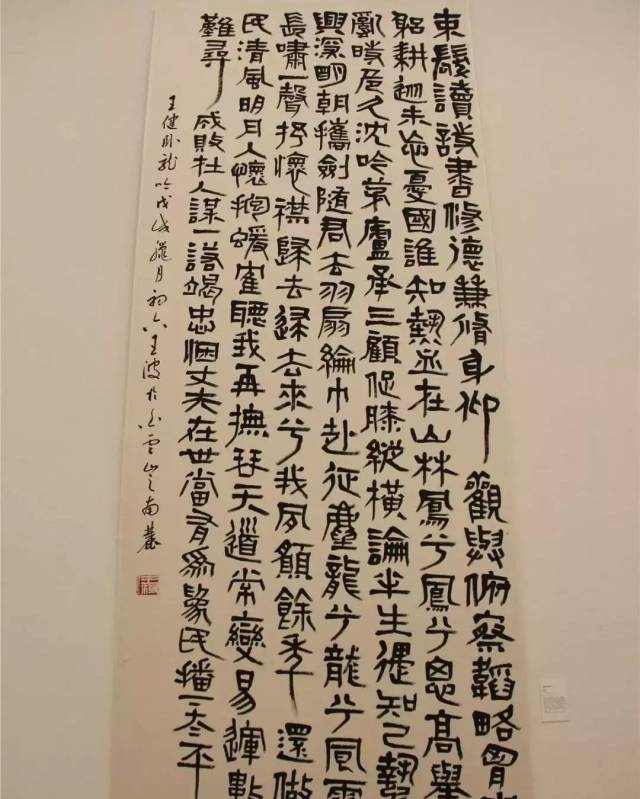 束髮讀詩書修德兼脩身仰觀與俯察韜略胷
躬耕從未忘憂國誰知熱血在山林鳳兮鳳兮思高舉
亂時危久沈吟茅廬承三顧促膝縱橫論半生遇知己
興深明朝攜劍隨君去羽扇綸巾赴征塵龍兮龍兮風雲
長嘯一聲抒懷襟歸去歸去來兮我夙願餘年還做
民清風明月入懷抱蝯隺聽我再撫琴天道常變易運數
難尋成敗在人謀一諾竭忠悃丈夫在世當有為為民播下太平
王健臥龍吟戊戌臘月初六王波於白雲山之南麓